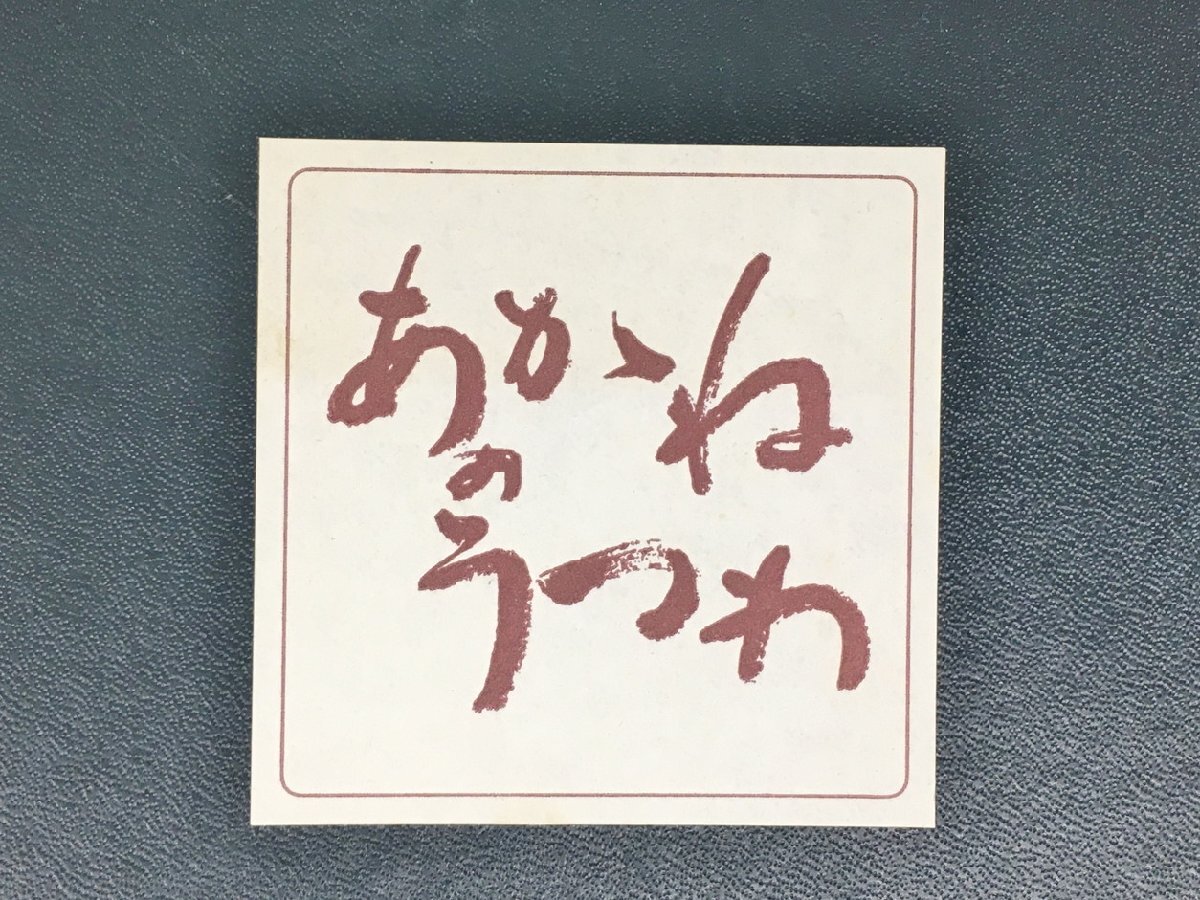 あかね
の
うつわ